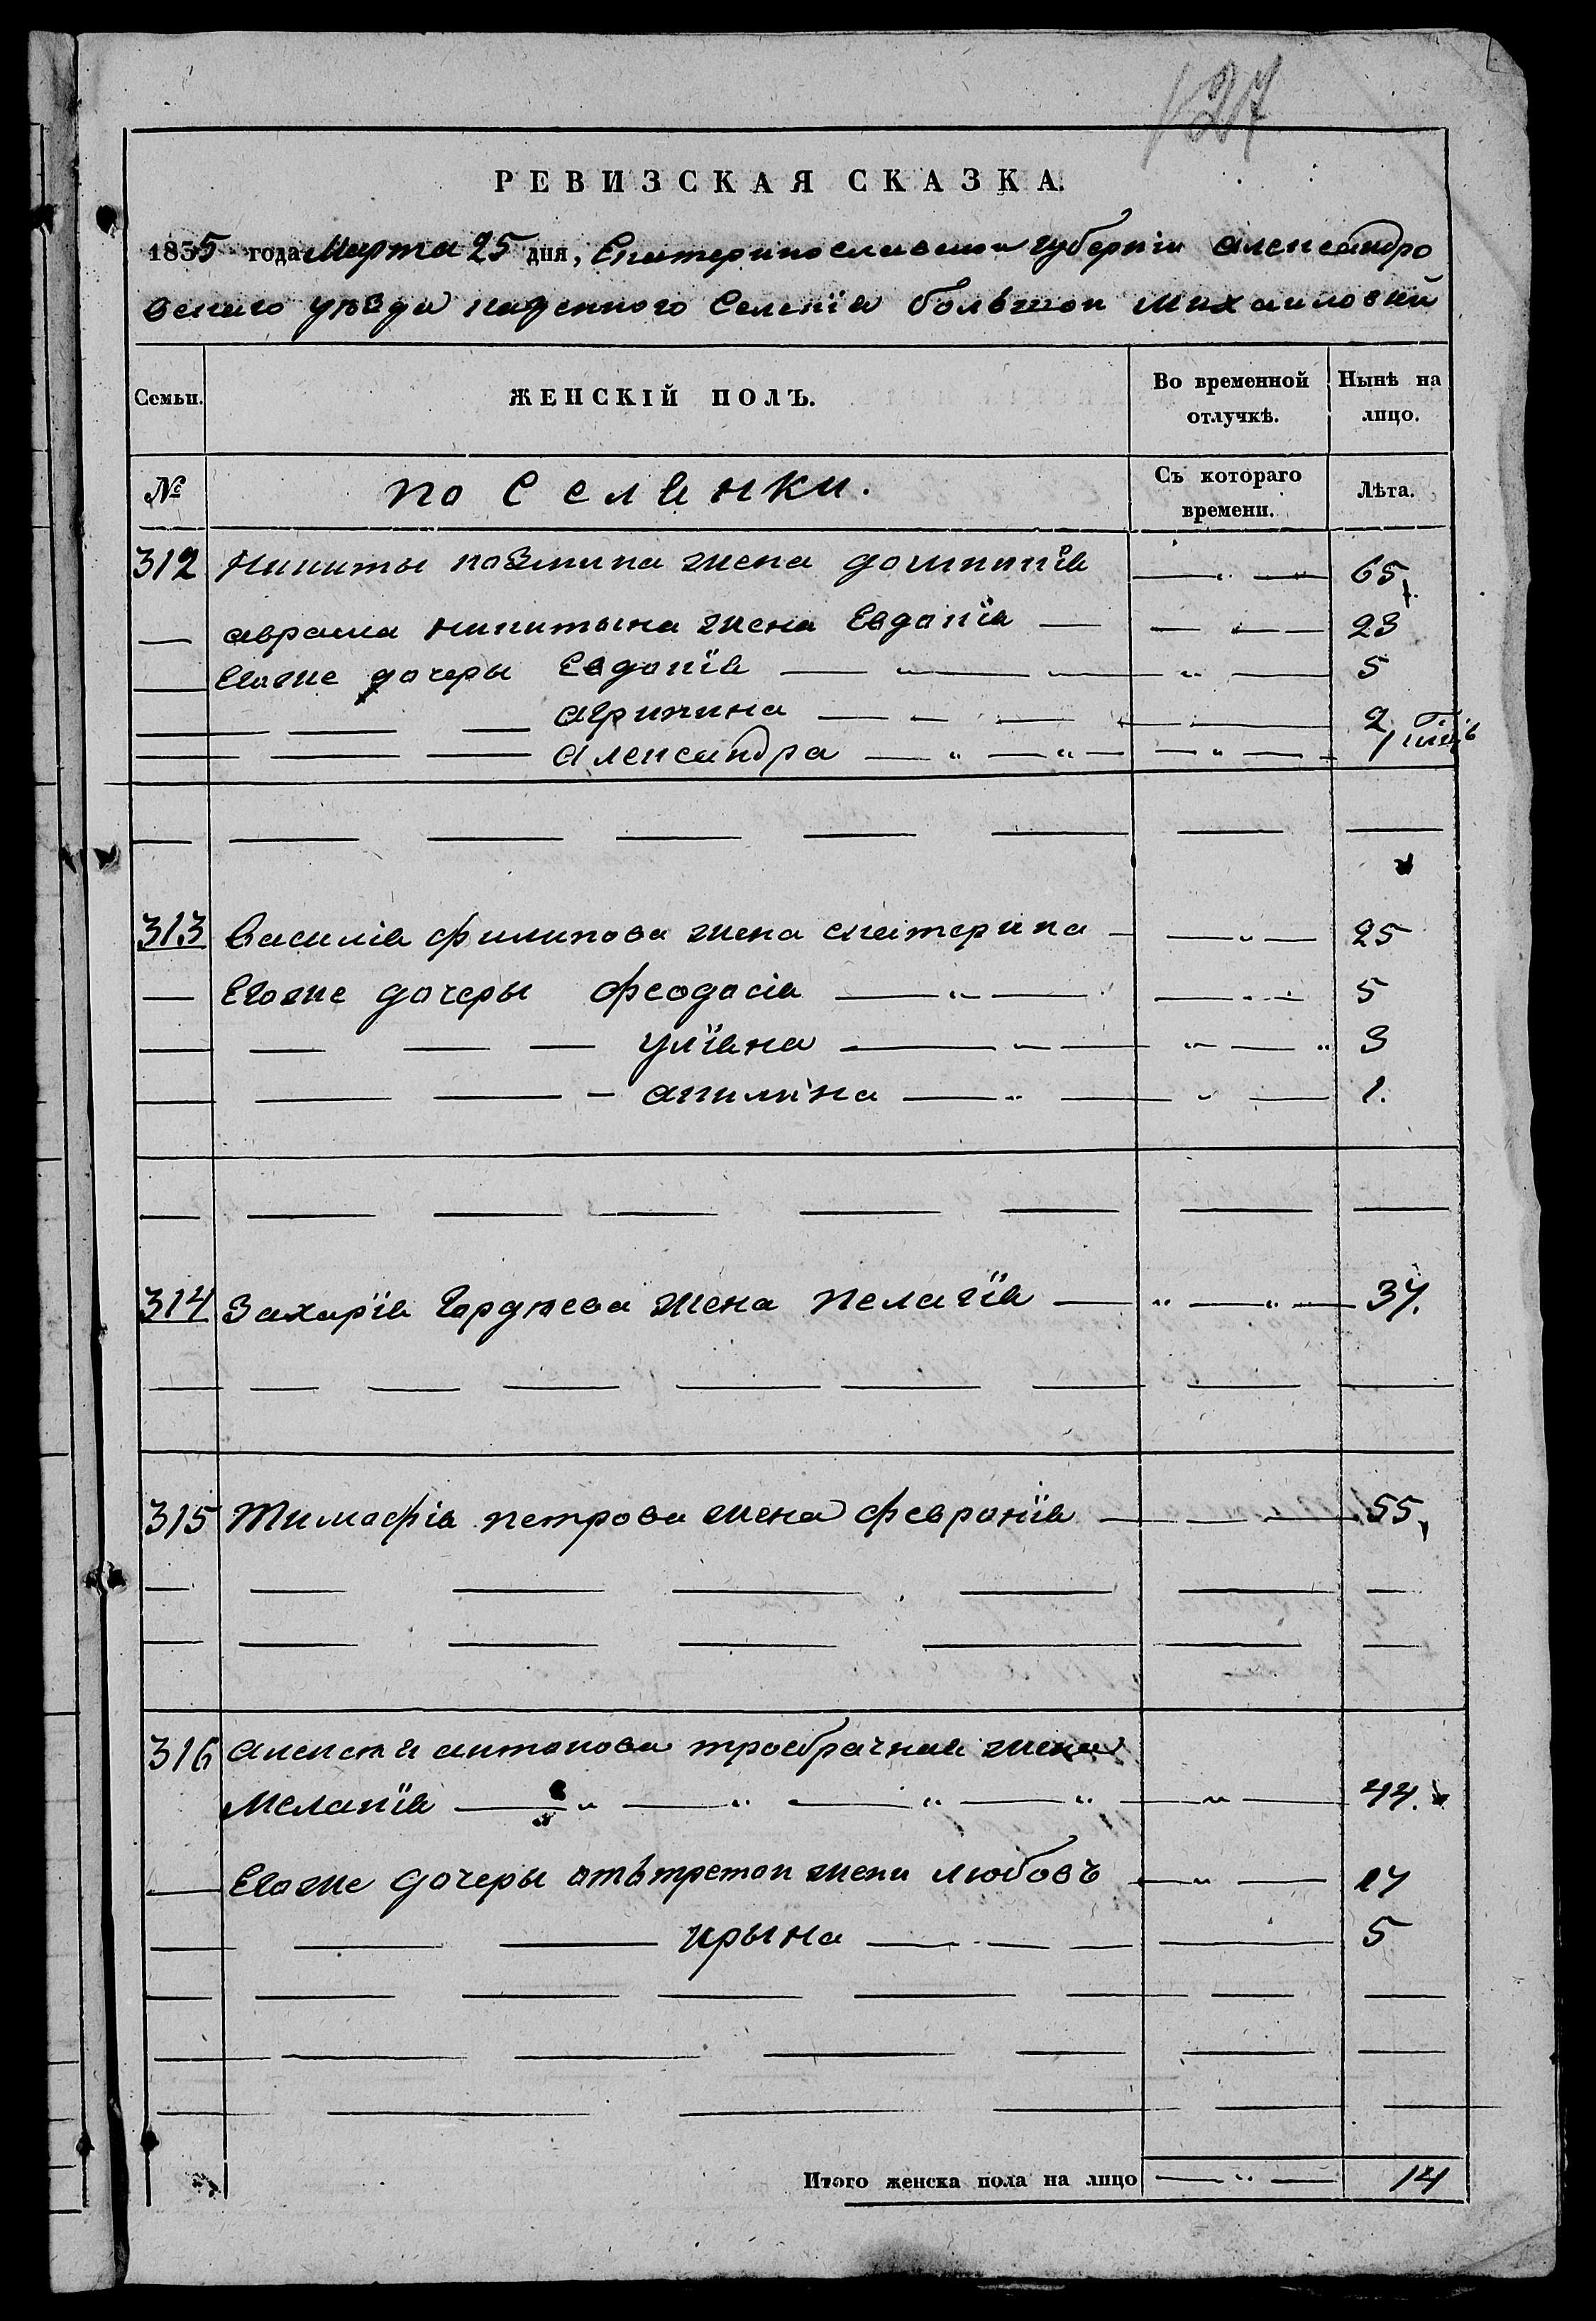 127
РЕВИЗСКАЯ СКАЗКА.
1835 года Марта 25 дня, Екатеринославской губерніи Александро
вскаго уѣзда казенного Селенія большой михаиловки
Семьи. ЖЕНСКІЙ ПОЛЪ. Во временной отлучкѣ. Нынѣ на лицо.
№ поселянки. Съ котораго времени. Лѣта.
312 Никиты козмина жена домникія 65
аврама никитына жена Евдокія 23
Егоже дочеры Евдокія 5
агрипина 2
александра 1
313 Василія филипова жена екатерина 25
Егоже дочеры феодосія 5
уліяна 3
акилина 1.
314 Захарія Гордѣева жена пелагія 37.
315 Тимофія петрова жена февронія 55
316 алексѣя антонова троебрачная жена
Меланія 44.
Егоже дочеры отътретои жени любовъ 17
ирына 5
Итого женска пола на лицо 14